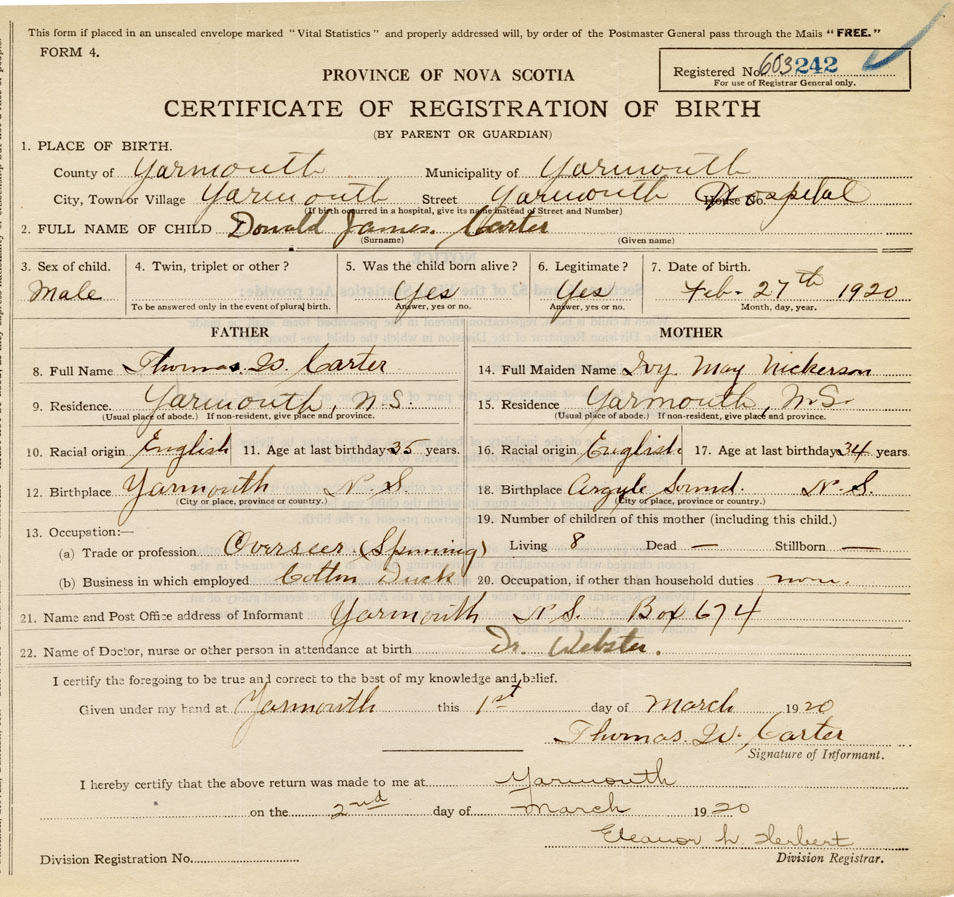 This form if placed in an unsealed envelope marked "Vital Statistics" and properly addressed will, by order of the Postmaster General pass through the Mails "FREE."
FORM 4.
Registered No. 603242
For use of Registrar General only.
PROVINCE OF NOVA SCOTIA
CERTIFICATE OF REGISTRATION OF BIRTH
(BY PARENT OR GUARDIAN)
1. PLACE OF BIRTH.
County of Yarmouth Municipality of Yarmouth
City, Town or Village Yarmouth Street Yarmouth House No. Hospital
(If birth occurred in a hospital, give its name instead of Street and Number)
2. FULL NAME OF CHILD Donald James. Carter
(Surname) (Given name)
3. Sex of child. 4. Twin, triplet or other? 5. Was the child born alive? 6. Legitimate? 7. Date of birth.
Male Yes Yes Feb- 27th 1920
To be answered only in the event of plural birth. Answer, yes or no. Answer, yes or no. Month, day, year.
FATHER MOTHER
8. Full Name Thomas. W. Carter 14. Full Maiden Name Ivy May Nickerson
9. Residence. Yarmouth, N.S. 15. Residence Yarmouth, N.S.
(Usual place of abode.) If non-resident, give place and province. (Usual place of abode.) If non-resident, give place and province.
10. Racial origin English 11. Age at last birthday 35 years. 16. Racial origin English 17. Age at last birthday 34 years.
12. Birthplace Yarmouth N.S. 18. Birthplace Argyle Sound. N.S.
(City or place, province or country.) (City or place, province or country.)
13. Occupation:— 19. Number of children of this mother (including this child.)
(a) Trade or profession Overseer (Spinning) Living 8 Dead — Stillborn —
(b) Business in which employed Cotton Duck 20. Occupation, if other than household duties none.
21. Name and Post Office address of Informant Yarmouth N.S. Box 674
22. Name of Doctor, nurse or other person in attendance at birth Dr. Webster.
I certify the foregoing to be true and correct to the best of my knowledge and belief.
Given under my hand at Yarmouth this 1st day of March 1920
Thomas. W. Carter
Signature of Informant.
I hereby certify that the above return was made to me at Yarmouth
on the 2nd day of March 1920
Eleanor h. Herbert
Division Registrar.
Division Registration No.